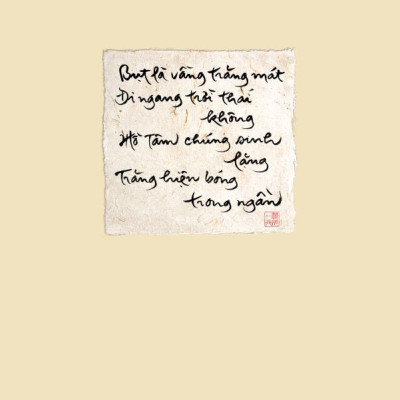 Bụt là vầng trăng mát
Đi ngang trời thái
không
Hồ Tâm chúng sinh
lặng
Trăng hiện bóng
trong ngần